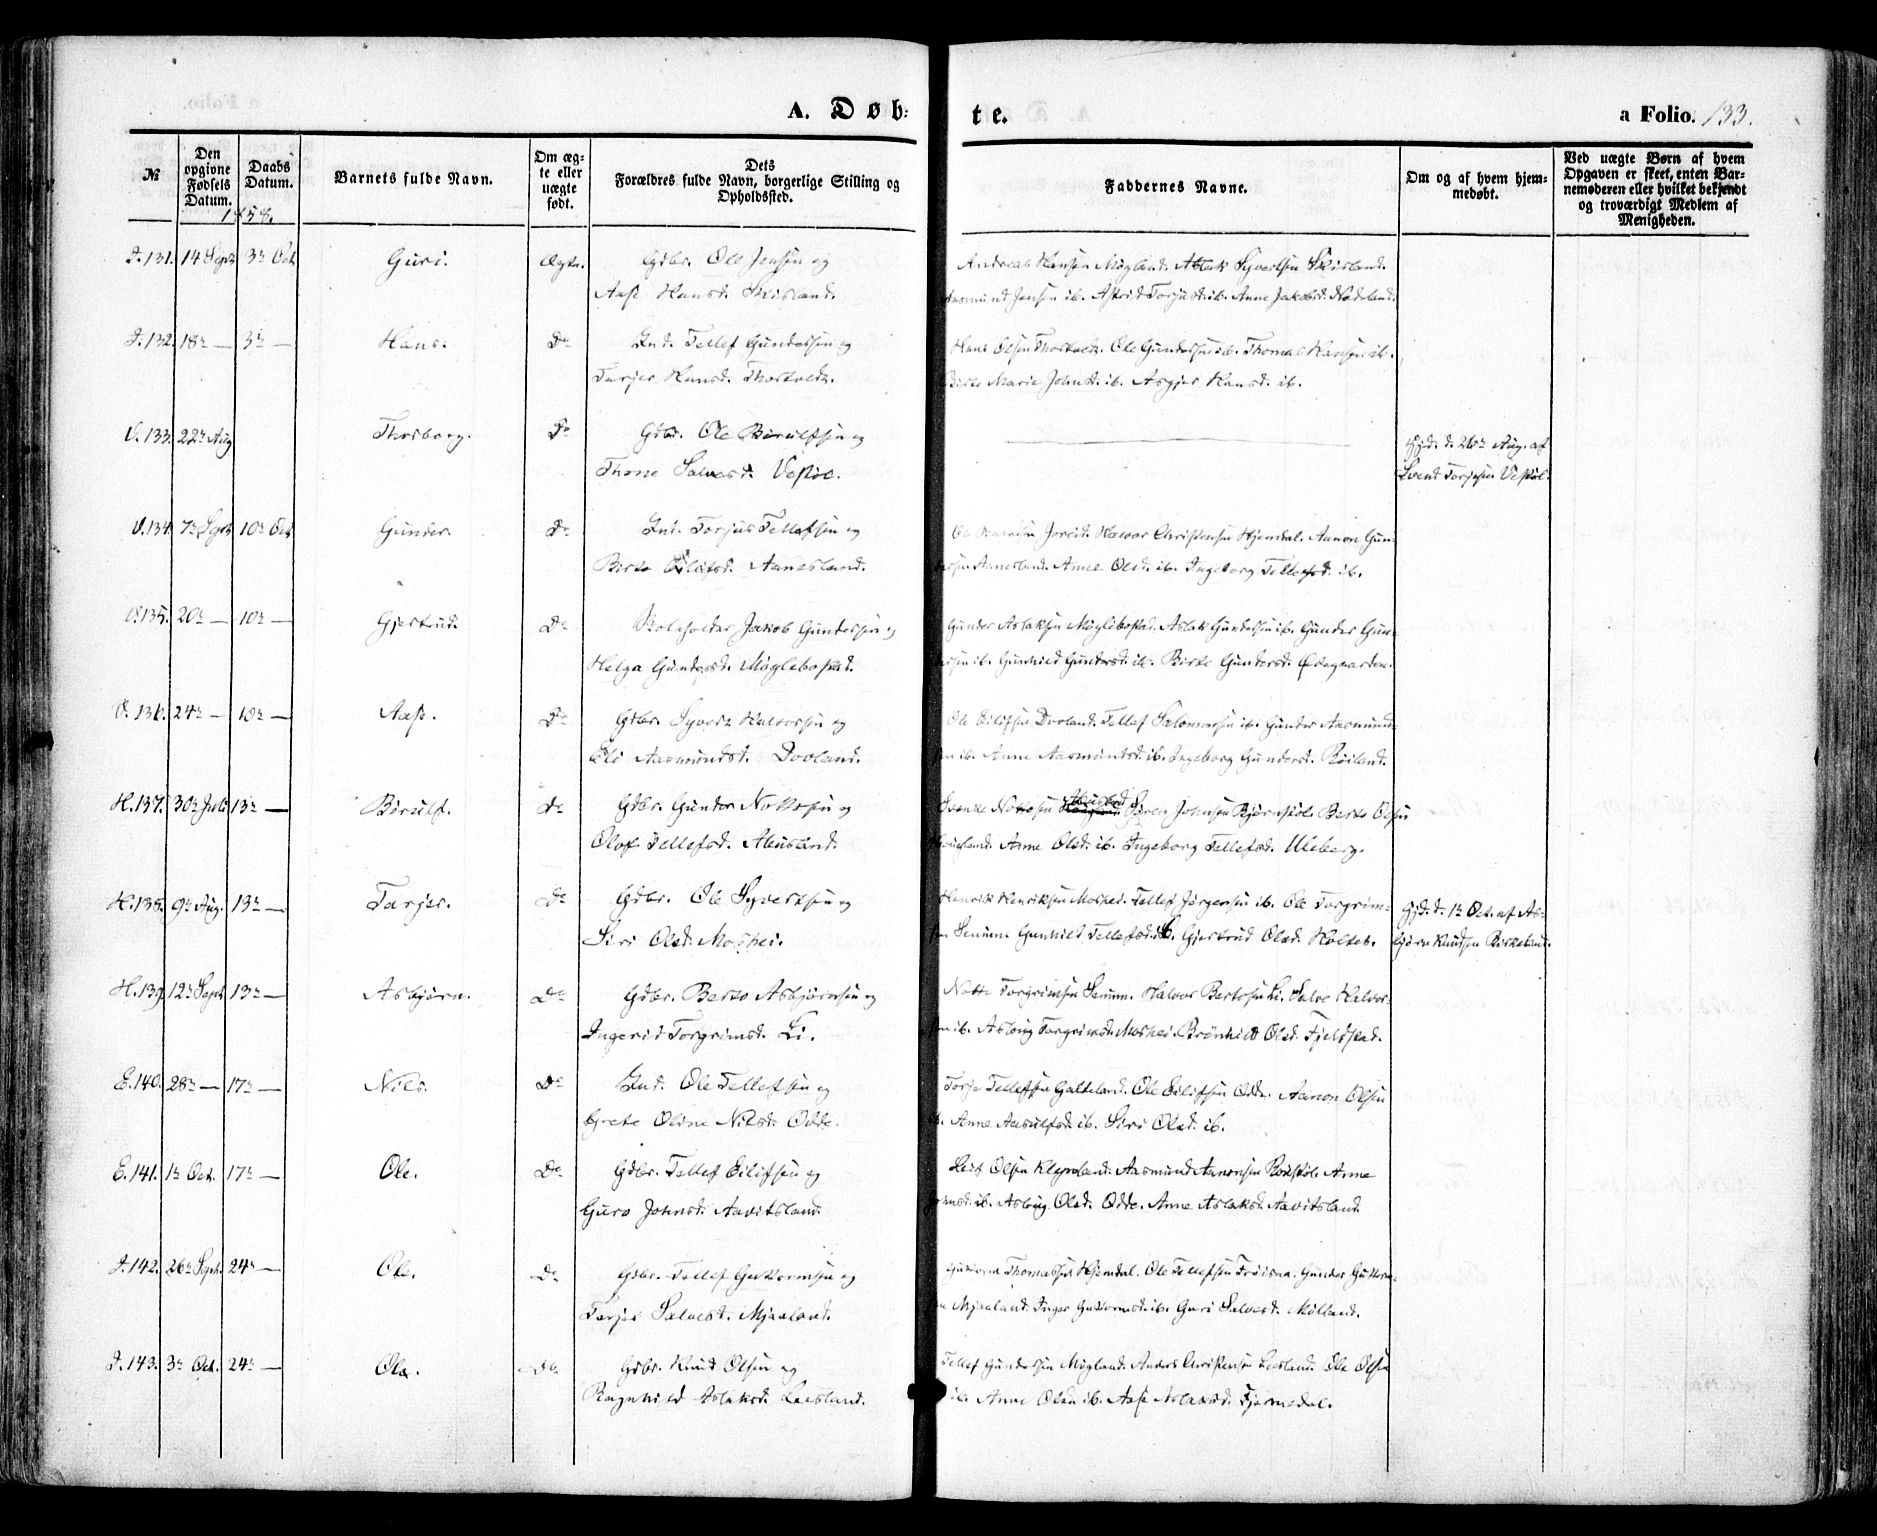 A. Døb-
te.
a Folio. 133.
№
Den opgivne Fødsels Datum.
Daabs Datum.
Barnets fulde Navn.
Om æg-
te eller
uægte
født.
Dets
Forældres fulde Navn, borgerlige Stilling og
Opholdssted.
Faddernes Navne.
Om og af hvem hjem-
medøbt.
Ved uægte Børn af hvem
Opgaven er skeet, enten Bar-
nemoderen eller hvilket bekjendt
og troværdigt Medlem af
Menigheden.
1858.
I. 131. 14 Sept 3n Oct. Guri. Ægte. Gdbr. Ole Jensen og
Aase Hansd. Skisland.
Andreas Hansen Mögland. Aslak Syvertsen Skisland.
Aasmund Jensen ib. Astrid Torjusd. ib. Anne Jakobsd. Nodeland.
I. 132. 18n — 3n — Hans. Do Ind. Tellef Gundersen og
Tarjer Hansd. Thorkelds.
Hans Olsen Thorkelds. Ole Gundersen ib. Thomas Hansen ib.
Birte Marie Johnsd. ib. Asgjer Hansd. ib.
V. 133. 22n Aug Thorborg. Do Gdbr. Ole Börulfsen og
Thone Salvesd. Vestöl.
Hjd. d. 26n Aug. af
Svend Torjesen Vestöl.
V. 134. 7n Sept 10n Oct Gunder. Do Ind. Torjus Tellefsen og
Birte Eilifsd. Aanesland.
Halvor Christensen Hjemdal. Aanon Gun-
dersen Aanesland. Anne Olsd. ib. Ingeborg Tellefsd. ib.
V. 135. 20n — 10n — Gjertrud. Do Skoleholder Jakob Gundersen og
Helga Gundersd. Möglebostad.
Gunder Aslaksen Möglebostad. Aslak Gundersen ib. Gunder Gun-
dersen ib. Gunhild Gundersd. ib. Birte Gundersd. Ödegaarden.
V. 136. 24n — 10n — Aase. Do Gdbr. Syvert Halvorsen og
Eli Aasmundsd. Dovland.
Ole Eilifsen Dovland. Tellef Salomonsen ib. Gunder Aasmund-
sen ib. Anne Aasmundsd. ib. Ingeborg Gundersd. Röiland.
H. 137. 30n Juli 13n — Börulf. Do Gdbr. Gunder Nottosen og
Olof Tellefsd. Abusland.
Svenke Nottosen Abusland Sören Johnsen Björnstöl. Berte Olsen
Anne Olsd. ib. Ingeborg Tellefsd. Uleberg.
H. 138. 9n Aug. 13n — Tarjer. Do Gdbr. Ole Syvertsen og
Siri Olsd. Moshei.
Henrik Henriksen Moshei. Tellef Jörgensen ib. Ole Torgrim-
sen Senum. Gunhild Tellefsd. ib. Gjertrud Olsd. Holtet.
Hjd. d. 1n Oct. af As-
björn Knudsen Birkeland.
H. 139. 12n Sept 13n — Asbjørn. Do Gdbr. Berto Asbjørnsen og
Ingerid Torgrimsd. Li.
Notto Torgrimsen Senum. Halvor Bertosen Li. Salve Halvor-
sen ib. Aslaug Torgrimsd. Moshei. Brönhild Olsd. Fjeldstad.
E. 140. 28n — 17n — Nils. Do Ind. Ole Tellefsen og
Grete Oline Nilsd. Odde.
Torje Tellefsen Galteland. Ole Eilifsen Odde. Aanon Olsen
ib. Anne Aasulfsd. ib. Siri Olsd. ib.
E. 141. 1n Oct. 17n — Ole. Do Gdbr. Tellef Eilifsen og
Guro Johnsd. Aavitsland.
Leif Olsen Klepsland. Aasmund Aanonsen Rosstöl. Anne
ib. Aslaug Olsd. Odde. Anne Aslaksd. Aavitsland.
I. 142. 26n Sept. 24n — Ole. Do Gdbr. Tellef Guttormsen og
Tarjer Salvesd. Mjaaland.
Guttorm Thomassen Hjemdal. Ole Tellefsen Fröisaa. Gunder Guttorm-
sen Mjaaland. Inger Guttormsd. ib. Guri Salvesd. Mölland.
I. 143. 3n Oct. 24n — Ole. Do Gdbr. Knud Olsen og
Ragnhild Aslaksd. Leesland.
Tellef Gundersen Mögland. Anders Christensen Leesland. Ole Olsen
ib. Anne Olsdn ib. Aase Aslaksd. Fjermedal.